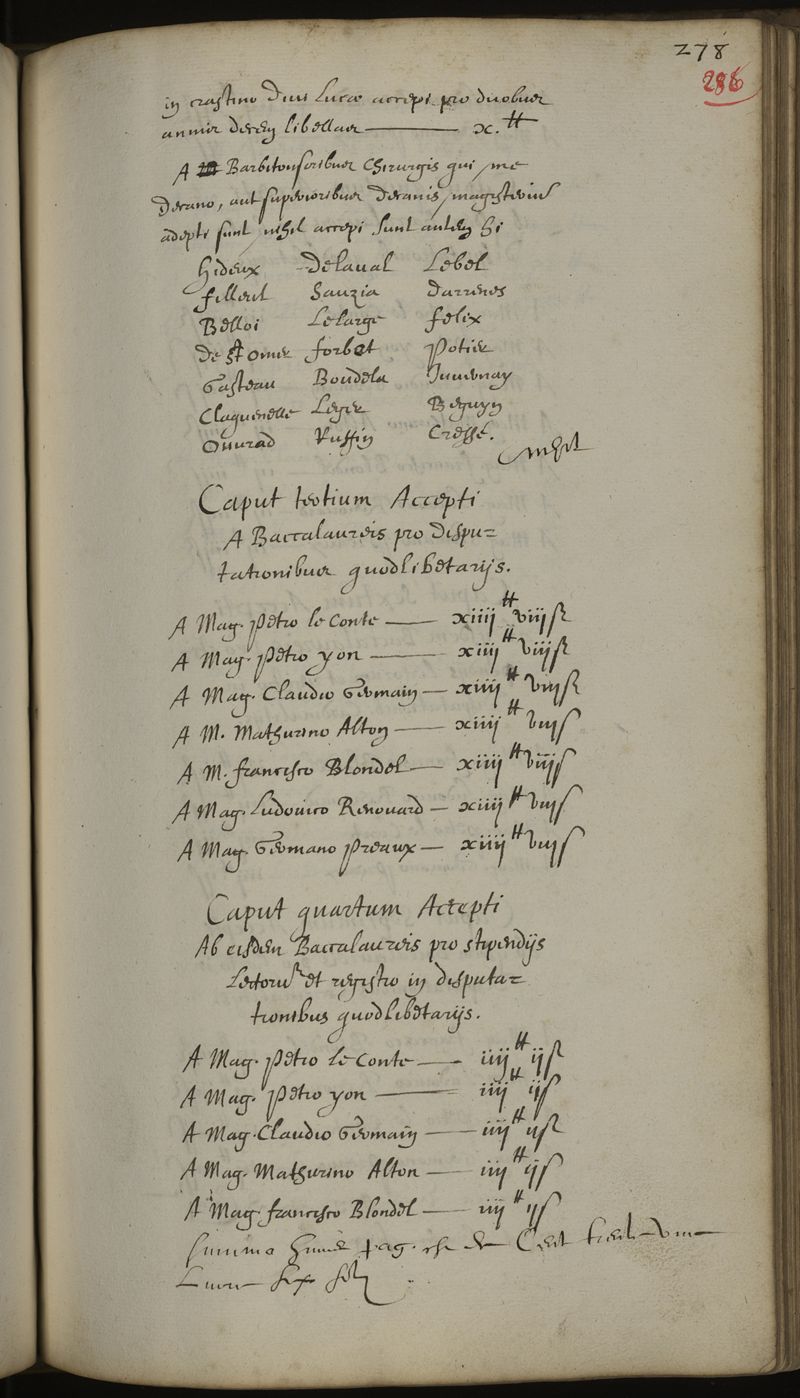 278
286
in crastino Divi Lucæ accepi pro duobus
annis decem libellas — x.tt
A Barbitonsoribus Chirurgis qui me
Decano, aut superioribus Decanis, magisterium
adepti sunt nihil accepi sunt autem hi
Hideux Delaval Lebel
filleul Sauzia Darrenes
Belloi Lelarge felix
De St Omer forbet Potier
Gasteau Boudela Juvernay
Claquenelle Leger Beguyn
Ouvrad Ruffin Cressé.
nihil
Caput tertium Accepti
A Baccalaureis pro dispu=
tationibus quodlibetarijs.
A Mag. Petro le Conte — xiiij tt viij ſ
A Mag. Petro yon — xiiij tt viij ſ
A Mag. Claudio Germain — xiiij tt viij ſ
A M. Mathurino Alton — xiiij tt viij ſ
A M. francisco Blondel — xiiij tt viij ſ
A Mag. Ludovico Renouard — xiiij tt viij ſ
A Mag. Germano Preaux — xiiij tt viij ſ
Caput quartum Accepti
Ab eisdem Baccalaureis pro stipendijs
Lectorum et registro in disputa=
tionibus quodlibetarijs.
A Mag. Petro Le Conte — iiij tt ij ſ
A Mag. Petro yon — iiij tt ij ſ
A Mag. Claudio Germain — iiij tt ij ſ
A Mag. Mathurino Alton — iiij tt ij ſ
A Mag. francisco Blondel — iiij tt ij ſ
Summa huius pag. Cent
six